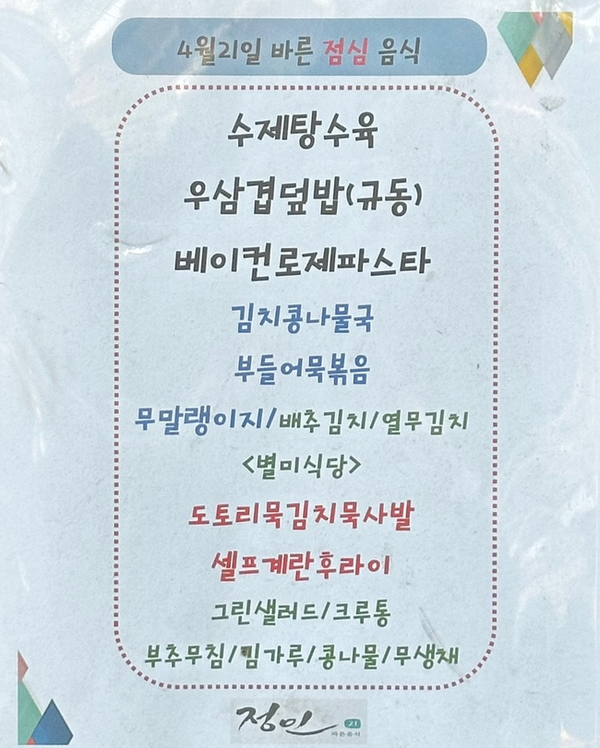 4월21일 바른 점심 음식
수제탕수육
우삼겹덮밥(규동)
베이컨로제파스타
김치콩나물국
부들어묵볶음
무말랭이지/배추김치/열무김치
<별미식당>
도토리묵김치묵사발
셀프계란후라이
그린샐러드/크루통
부추무침/김가루/콩나물/무생채
정인 21
바른음식